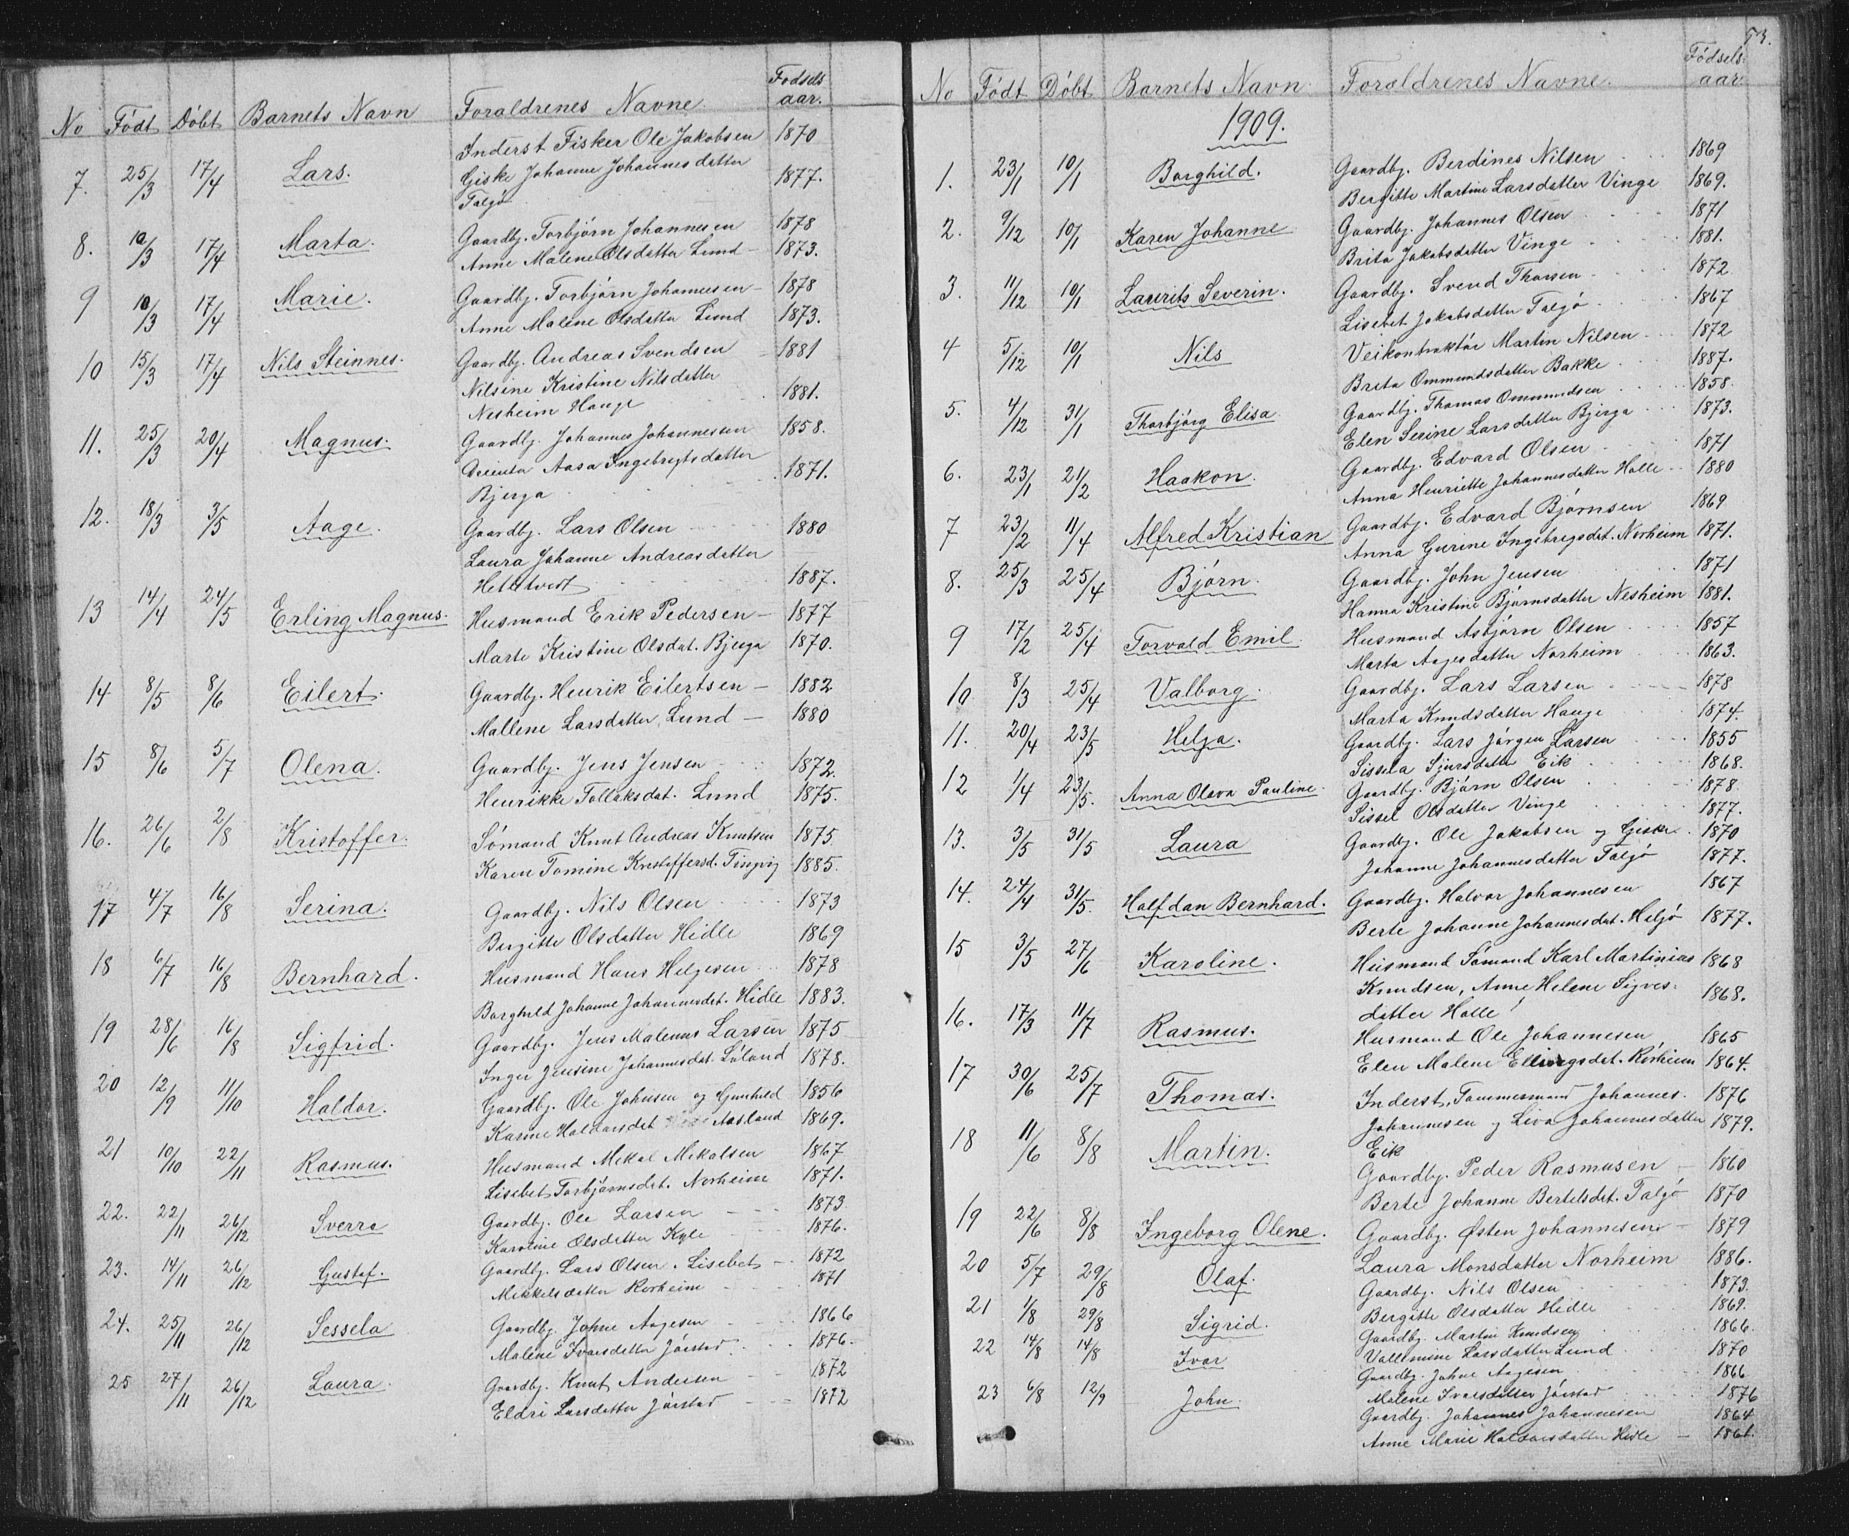 No Født Døbt Barnets Navn Forældrenes Navne. Fødsels aar.
7. 25/3 17/4 Lars. Inderst Fisker Ole Jakobsen 1870
Giske Johanne Johannesdatter 1877.
Talgø
8. 10/3 17/4 Marta. Gaardbj. Torbjørn Johannesen 1878
Anne Malene Olsdatter Lund 1873.
9 10/3 17/4 Marie. Gaardbj. Torbjørn Johannesen 1878
Anne Malene Olsdatter Lund 1873.
10 15/3 17/4 Nils Steinnes. Gaardbj. Andreas Svendsen 1881
Nilsine Kristine Nilsdatter
Nesheim Hauge 1881.
11. 25/3 20/4 Magnus. Gaardbj. Johannes Johannesen 1858.
Aasa Ingebrigtsdatter 1871.
Bjerga
12. 18/3 3/5 Aage. Gaardbj. Lars Olsen 1880
Laura Johanne Andreasdatter
Hetletvedt 1887.
13 14/4 24/5 Erling Magnus. Husmand Erik Pedersen 1877
Marte Kristine Olsdat. Bjerga 1870.
14 8/5 8/6 Eilert. Gaardbj. Henrik Eilertsen 1882
Mallene Larsdatter Lund 1880
15 8/6 5/7 Olena. Gaardbj. Jens Jensen 1872.
Henrikke Tollaksdat. Lund 1875.
16. 26/6 2/8 Kristoffer. Sømand Knut Andreas Knutsen 1875
Karen Tomine Kristoffersd. Tingvig 1885.
17 4/7 16/8 Serina. Gaardbj. Nils Olsen 1873
Bergitte Olsdatter Hidle 1869
18 6/7 16/8 Bernhard. Husmand Hans Helgesen 1878
Borghild Johanne Johannesdat. Hidle 1883.
19 28/6 16/8 Sigfrid. Gaardbj. Jens Malenus Larsen 1875
Inger Jensine Johannesdat. Söland 1878.
20 12/9 11/10 Haldor. Gaardbj. Ole Johnsen og Gunhild 1856
Karine Haldorsdet Aasland 1869.
21 10/10 22/11 Rasmus. Husmand Mikal Mikalsen 1867
Lisebet Torbjørnsdet. Norheim 1871.
22. 22/11 26/12 Sverre Gaardbj. Ole Larsen 1873
Karoline Olsdatter Kyle 1876.
23. 14/11 26/12 Gustaf. Gaardbj. Lars Olsen, Lisebet 1872
Mikkelsdatter Rorheim 1871
24. 25/11 26/12 Sessela Gaardbj. Johne Aagesen 1866
Malene Ivarsdatter Jørstad 1876.
25 27/11 26/12 Laura. Gaardbj. Knut Andersen 1872
Eldri Larsdatter Jørstad 1872
73.
No Født Døbt Barnets Navn Forældrenes Navne. Fødsels aar.
1909.
1. 23/1 10/1 Borghild. Gaardbj. Berdines Nilsen 1869
Bergitte Martine Larsdatter Vinge 1869.
2. 9/12 10/1 Karen Johanne Gaardbj. Johannes Olsen 1871
Brita Jakobsdatter Vinge 1881.
3. 11/12 10/1 Laurits Severin. Gaardbj. Svend Thorsen 1872
Lisebet Jakobsdatter Talgø 1867
4 5/12 10/1 Nils Veikontraktør Martin Nilsen 1872
Brita Ommundsdatter Bakke 1887.
5. 4/12 31/1 Thorbjørg Elisa Gaardbj. Thomas Ommundsen 1858.
Elen Serine Larsdatter Bjerga 1873.
6. 23/1 21/2 Haakon. Gaardbj. Edvard Olsen 1871
Anna Henriette Johannesdatter Halle 1880
7 23/2 11/4 Alfred Kristian Gaardbj. Edvard Bjørnsen 1869
Anna Gurine Ingebregsdat. Norheim 1871.
8. 25/3 25/4 Bjørn. Gaardbj. John Jensen 1871
Hanna Kristine Bjørnsdatter Nesheim 1881.
9 17/2 25/4 Torvald Emil. Husmand Asbjørn Olsen 1857
Marta Aagesdatter Norheim 1863.
10. 8/3 25/4 Valborg. Gaardbj. Lars Larsen 1878
Marta Knudsdatter Hauge 1874.
11. 20/4 23/5 Helga. Gaardbj. Lars Jørgen Larsen 1855
Sissela Sjursdatter Eik 1868.
12 1/4 23/5. Anna Olava Pauline. Gaardbj. Bjørn Olsen 1878.
Sissel Olsdatter Vinge 1877.
13. 3/5 31/5 Laura Gaardbj. Ole Jakobsen og Giske 1870
Johanne Johannesdatter Talgø 1877.
14. 24/4 31/5. Halfdan Bernhard. Gaardbj. Halvor Johannesen 1867
Berte Johanne Johannesdat. Helgø 1877.
15 3/5 27/6 Karoline. Husmand Sømand Karl Martinias 1868
Knudsen, Anne Helene Sigves- 1868.
datter Halle
16. 17/3 11/7 Rasmus. Husmand Ole Johannesen 1865
Elen Malene Ellingsdet. Rorheim 1864.
17 30/6 25/7 Thomas. Inderst, Tømmermand Johannes 1876
Johannesen og Liva Johannesdatter 1879.
Eik
18 11/6 8/8 Martin. Gaardbj. Peder Rasmusen 1860
Berte Johanne Bertelsdet. Talgø 1870
19 22/6 8/8 Ingeborg Olene. Gaardbj. Østen Johannesen 1879
Laura Monsdatter Norheim 1886.
20 5/7 29/8 Olaf. Gaardbj. Nils Olsen 1873.
Bergitte Olsdatter Hidle 1869.
21 1/8 29/8 Sigrid. Gaardbj. Martin Knudsen 1866.
Vallemine Larsdatter Lund 1870
22 14/8 14/8 Ivar Gaardbj. Johne Aagesen 1866
Malene Ivarsdatter Jørstad 1876
23 6/8 12/9 John. Gaardbj. Johannes Johannesen 1864
Anne Marie Haldorsdatter Hidle 1861.